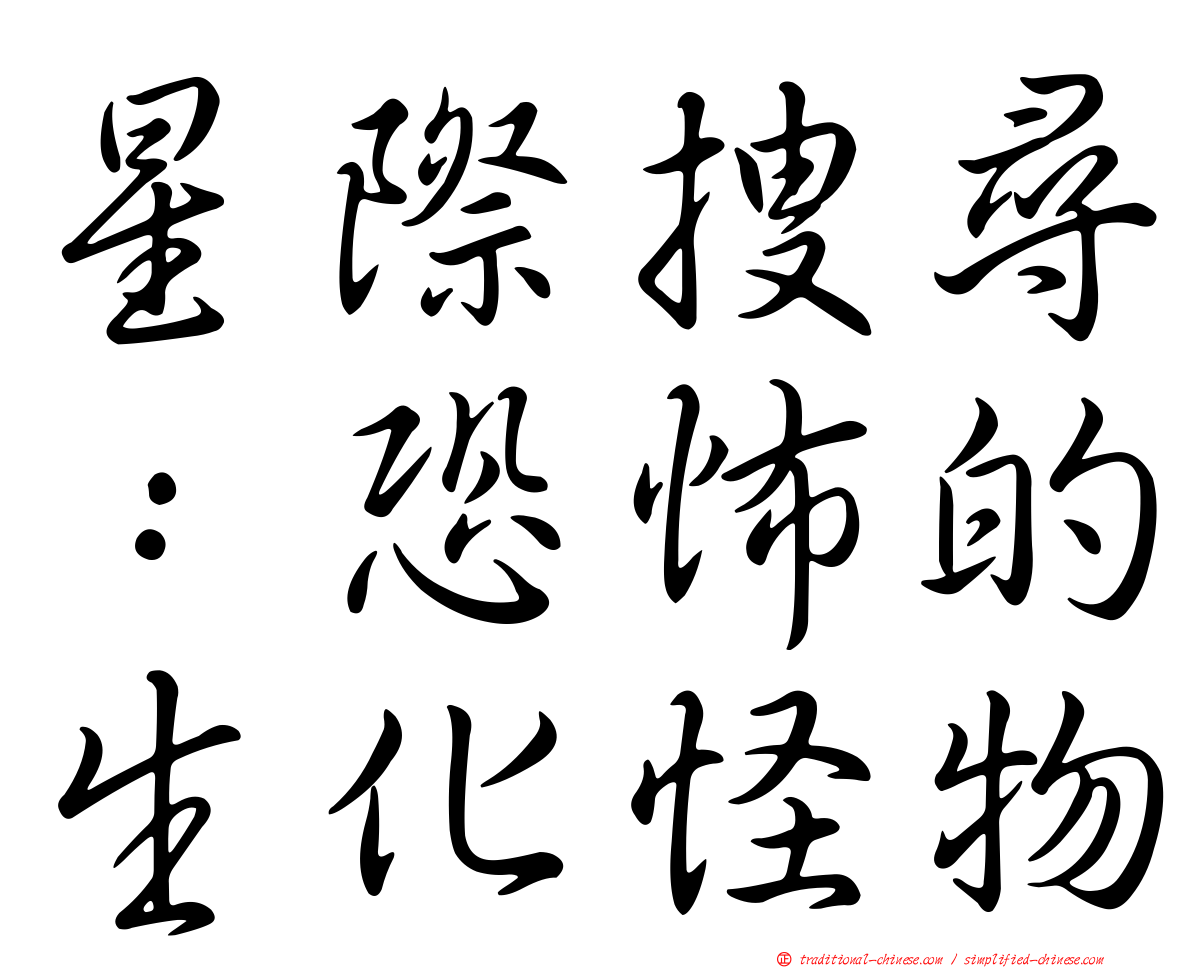 星際搜尋
：恐怖的
生化怪物
正 traditional-chinese.com / simplified-chinese.com